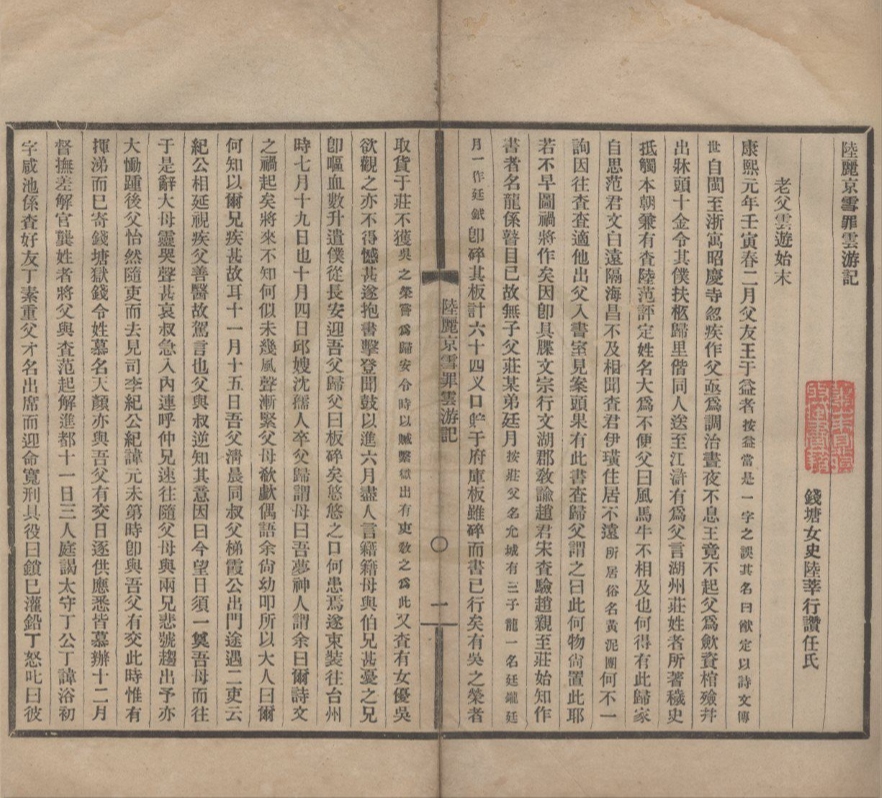 陸麗京雪罪雲游記
錢塘女史陸莘行讚任氏
老父雲遊始末
康熙元年壬寅春二月父友王于益者按益當是一字之誤其名曰猷定以詩文傳
世自閩至浙寓昭慶寺忽疾作父亟爲調治晝夜不息王竟不起父爲歛資棺殮幷
出牀頭十金令其僕扶柩歸里偕同人送至江滸有爲父言湖州莊姓者所著穢史
抵觸本朝兼有査陸范評定姓名大爲不便父曰風馬牛不相及也何得有此歸家
自思范君文白遠隔海昌不及相聞査君伊璜住居不遠所居俗名黃泥團何不一
詢因往査査適他出父入書室見案頭果有此書査歸父謂之曰此何物尙置此耶
若不早圖禍將作矣因卽具牒文宗行文湖郡敎諭趙君宋査驗趙親至莊始知作
書者名龍係瞽目已故無子父莊某弟廷月按莊父名允城有三子龍一名廷鑨廷
月一作廷鉞卽碎其板計六十四义口貯于府庫板雖碎而書已行矣有吳之榮者
陸麗京雪罪雲游記
一
取貨于莊不獲吳之榮嘗爲歸安令時以贓繫獄出有吏敎之爲此又査有女優吳
欲觀之亦不得憾甚遂抱書擊登聞鼓以進六月盡人言籍籍母與伯兄甚憂之兄
卽嘔血數升遣僕從長安迎吾父歸父曰板碎矣悠悠之口何患焉遂束裝往台州
時七月十九日也十月四日邱嫂沈孺人卒父歸謂母曰吾夢神人謂余曰爾詩文
之禍起矣將來不知何似未幾風聲漸緊父母欷歔偶語余尙幼叩所以大人曰爾
何知以爾兄疾甚故耳十一月十五日吾父淸晨同叔父梯霞公出門途遇二吏云
紀公相延視疾父善醫故駕言也父與叔逆知其意因曰今望日須一奠吾母而往
于是辭大母靈哭聲甚哀叔急入內連呼仲兄速往隨父母與兩兄悲號趨出予亦
大慟踵後父怡然隨吏而去見司李紀公紀諱元未第時卽與吾父有交此時惟有
揮涕而已寄錢塘獄錢令姓慕名天顏亦與吾父有交日逐供應悉皆慕辦十二月
督撫差解官龔姓者將父與査范起解進都十一日三人庭謁太守丁公丁諱浴初
字咸池係査好友丁素重父才名出席而迎命寬刑具役曰鎖已灌鉛丁怒叱曰彼